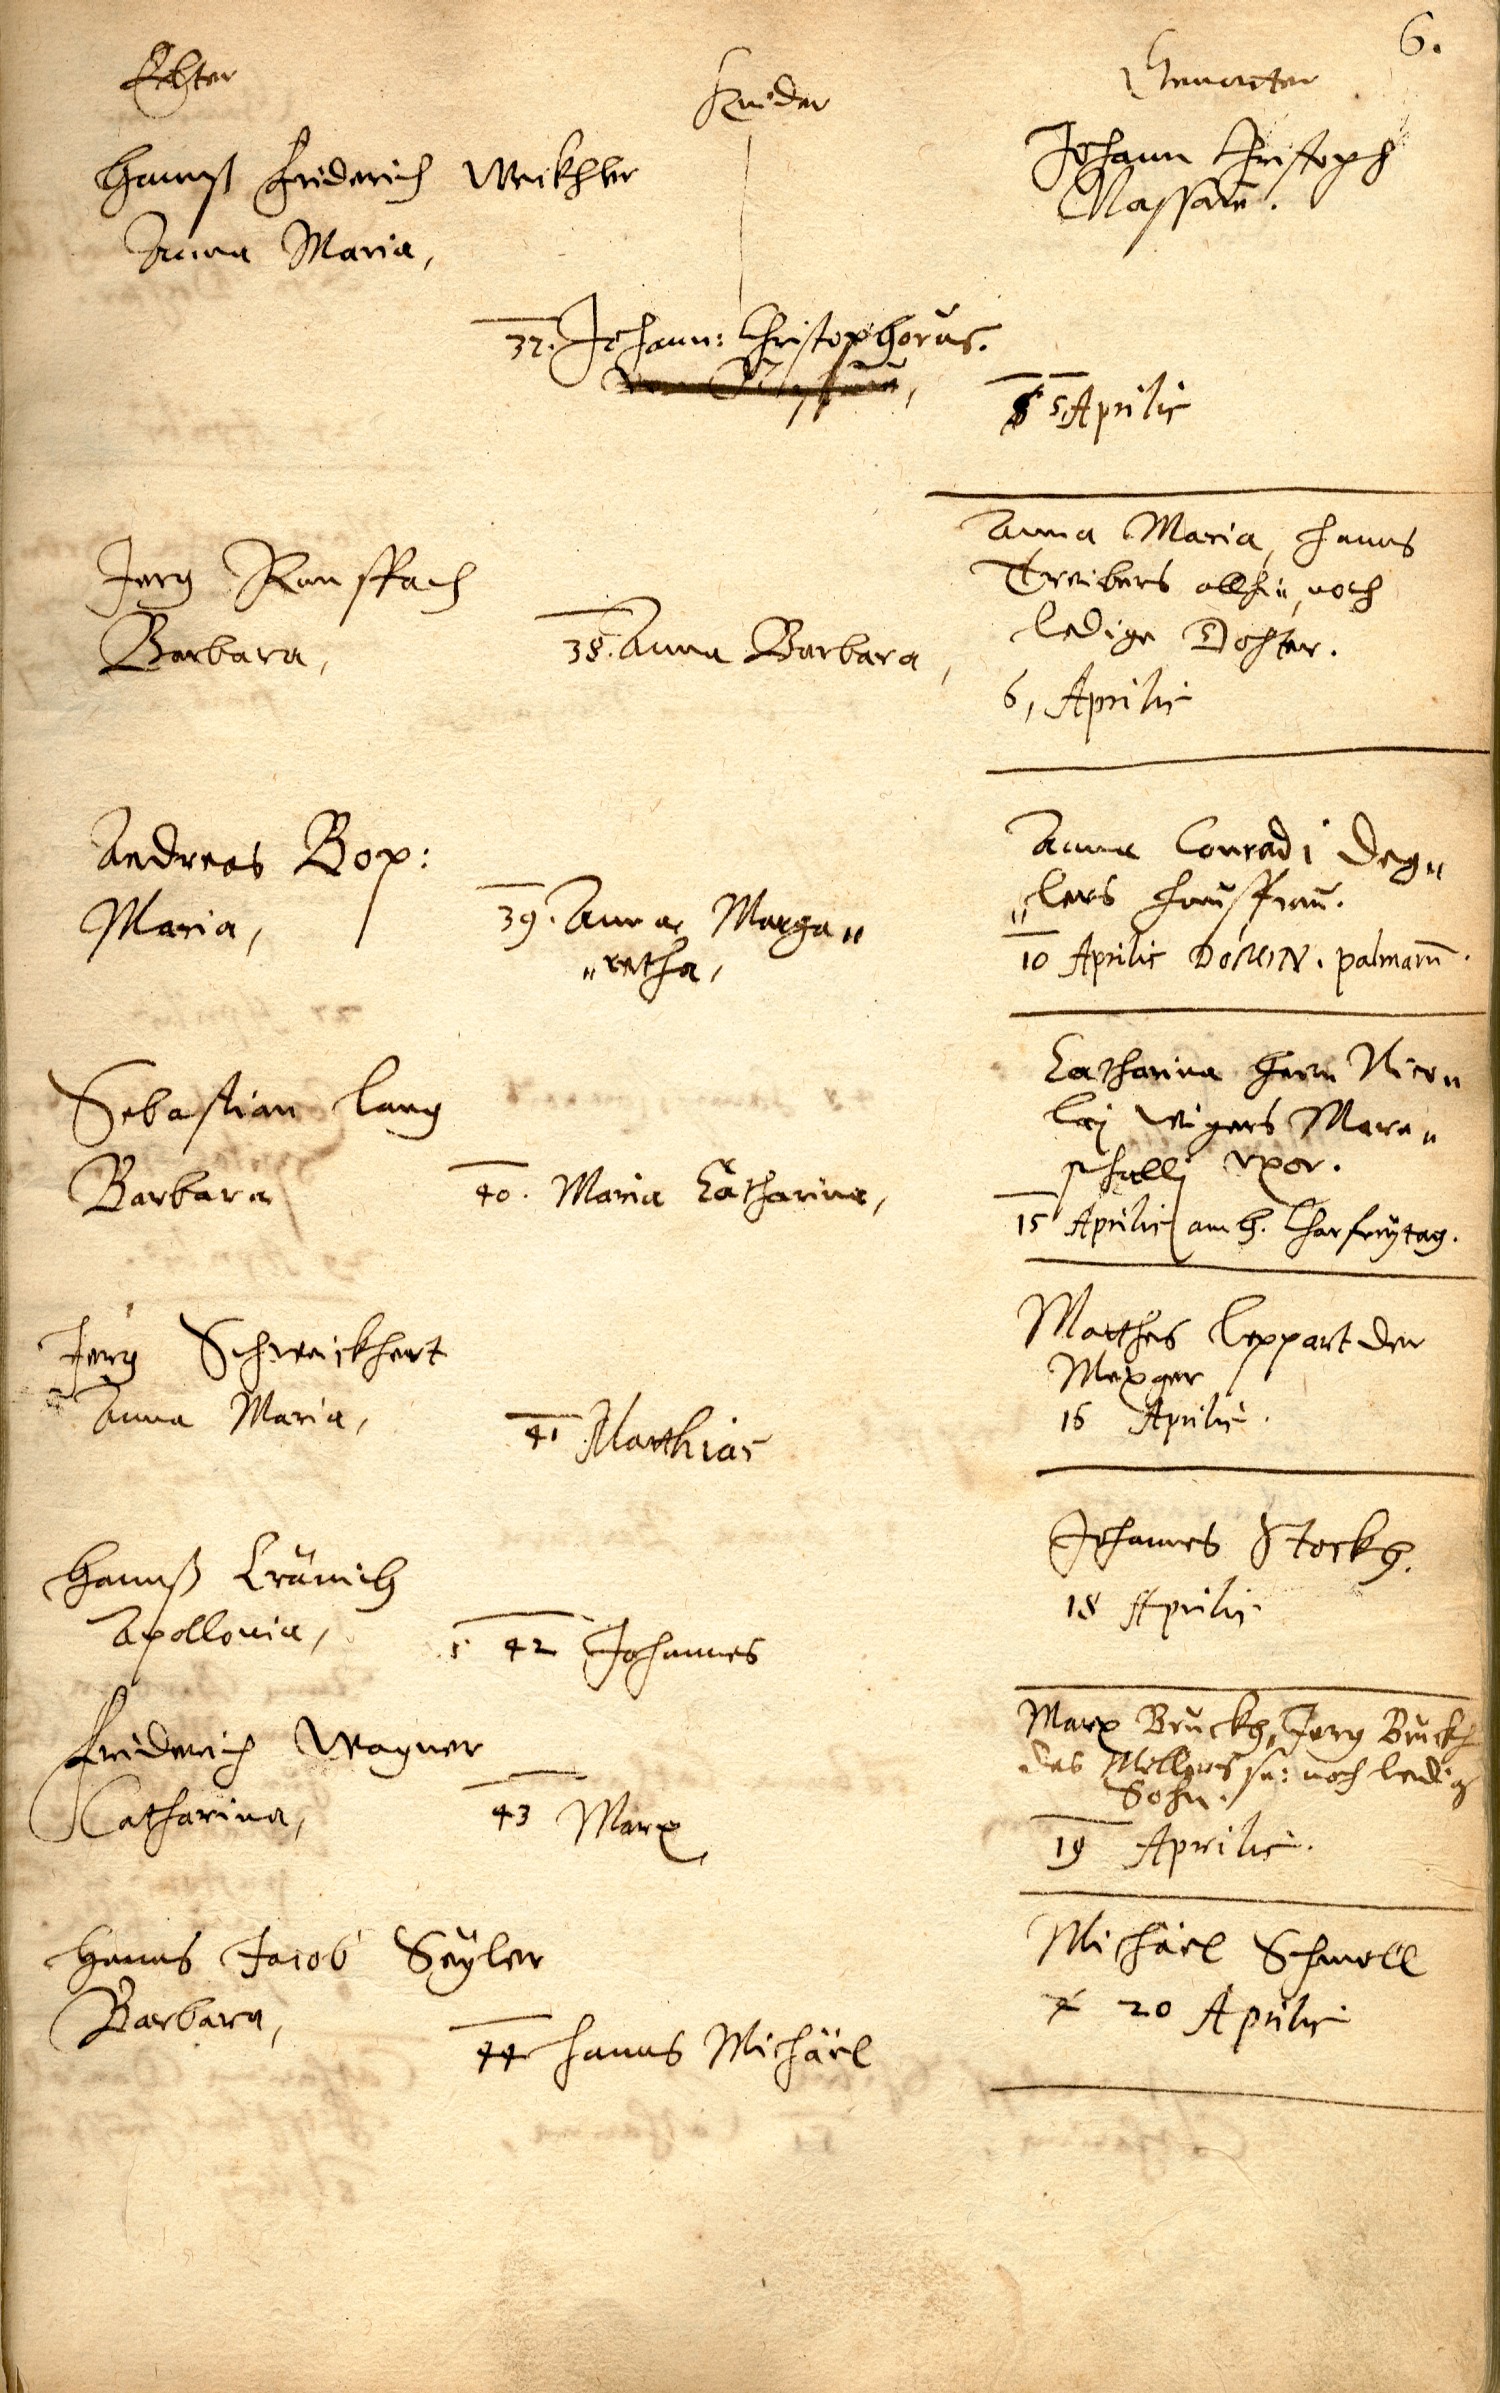 6.
Eltter
Kinder
Gevatter
Hannß Friderich Weikhler
Anna Maria,
Johann Christoph
Massaw.
37. Johann: Christophorus.
5 Aprilis
Jerg Rauffbach
Barbara,
38. Anna Barbara,
Anna Maria, Hanns
Treibers allhie, noch
ledige Dohter.
6, Aprilis
Andreas Box:
Maria,
39. Anna Marga„
„retha,
Anna Conradi Deg„
„lers haußfrau.
10 Aprilis DOMIN. palmarū.
Sebastian Lang
Barbara
40. Maria Catharina,
Catharina Herrn Nico„
laj Wigers Mare„
schallj vxor.
15 Aprilis am h. Charfreÿtag.
Jerg Schweickhert
Anna Maria,
41 Matthias
Matthes Leppart der
Mezger
16 Aprilis.
Hannß Cränich
Apollonia,
42 Johannes
Johannes Stockh.
18 Aprilis
Friderich Wagner
Catharina,
43 Marx
Marx Bruckh, Jerg Bruckh
des Millers se: noch ledig
Sohn.
19 Aprilis.
Hanns Jacob Seÿler
Barbara,
44 Hanns Michäel
Michäel Schmoll
20 Aprilis